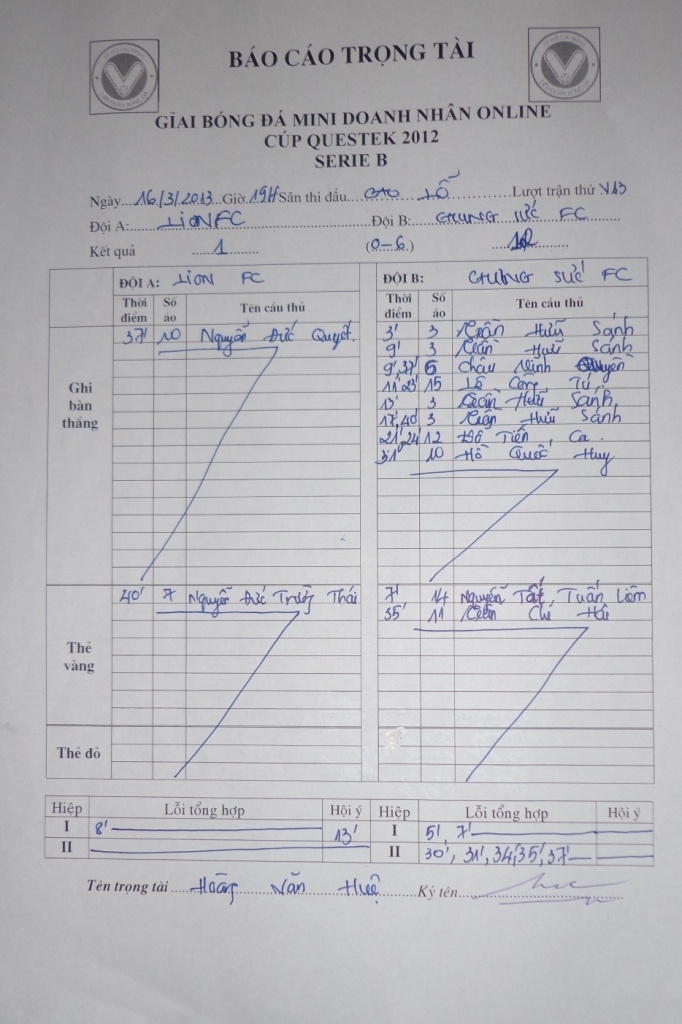 BÁO CÁO TRỌNG TÀI
GIẢI BÓNG ĐÁ MINI DOANH NHÂN ONLINE
CÚP QUESTEK 2012
SERIE B
Ngày....16/3/2013 Giờ.19H Sân thi đấu....CAO LỖ..........Lượt trận thứ V13
Đội A:......LION FC..........Đội B:......CHUNG SỨC FC..........
Kết quả ......1...... (0-6.) ......12......
ĐỘI A: LION FC ĐỘI B: CHUNG SỨC FC
Thời điểm Số áo Tên cầu thủ Thời điểm Số áo Tên cầu thủ
Ghi bàn thắng
37' 10 Nguyễn Đức Quyết 3' 3 Trần Hữu Sánh
9' 3 Trần Hữu Sánh
9', 37' 6 Châu Minh
11', 23' 15 Lê Công Tú
13' 3 Trần Hữu Sánh
17', 40' 3 Trần Hữu Sánh
21', 24' 12 Đỗ Tiến Ca
31' 10 Hồ Quốc Huy
Thẻ vàng
40' 7 Nguyễn Đức Trường Thái 7' 14 Nguyễn Tất Tuấn Liêm
35' 11 Trần Chí Hải
Thẻ đỏ
Hiệp Lỗi tổng hợp Hội ý Hiệp Lỗi tổng hợp Hội ý
I 8' 13' I 5', 7'
II II 30', 31', 34', 35', 37'
Tên trọng tài......Hoàng Văn Huệ......Ký tên